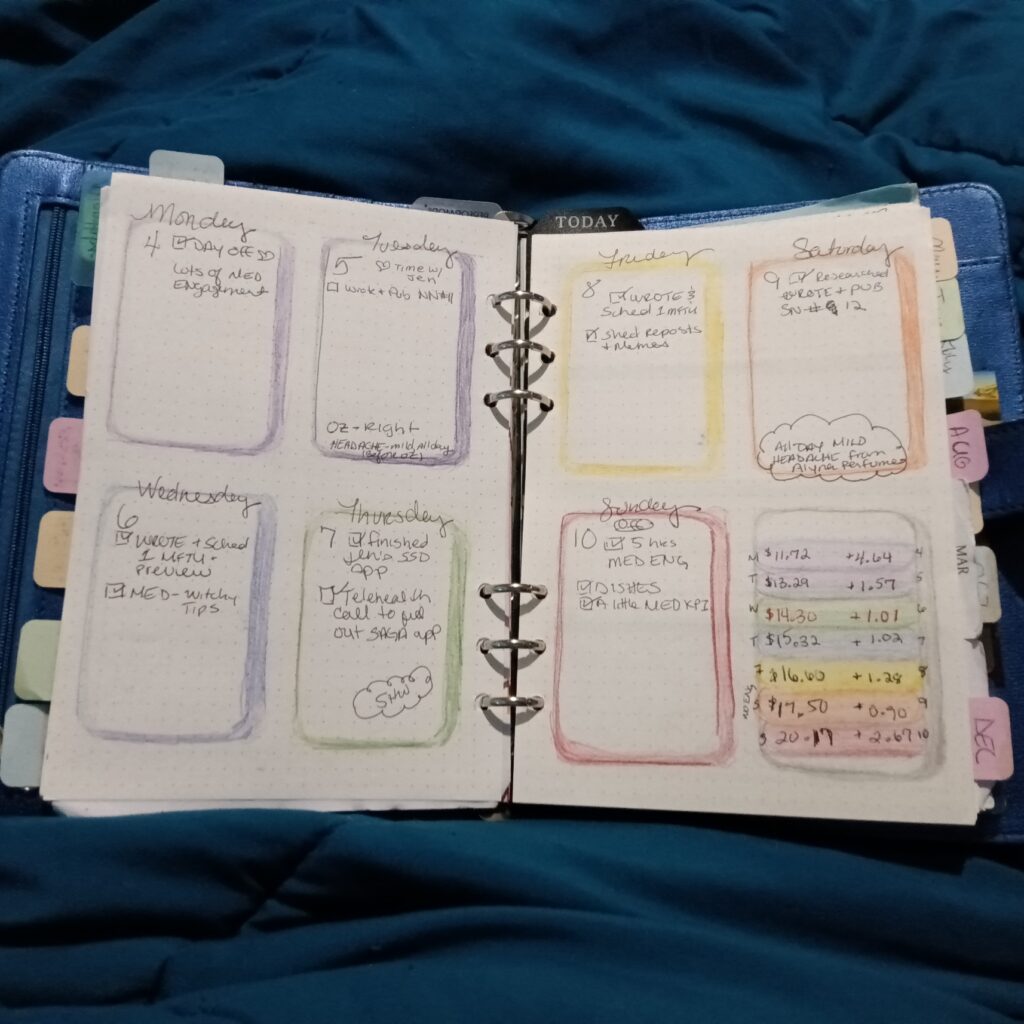 TODAY
Monday
4 DAY OFF SD
LOTS OF MED
ENGAGEMENT
Tuesday
5 Time w/
Jen
Pub NN#11
OZ - Right
HEADACHE - mild, All day
(Before OZ)
Wednesday
6
WROTE + Sched
1 MFTU +
Preview
MED - Witchy
TIPS
Thursday
7 finished
Jen's SSD
app
Telehealth
call to
out SAGA app
Friday
8 WROTE &
Sched 1 MFTU
Shed Reposts
+ Memes
Saturday
9 Researched
WROTE + PUB
SN-# 12
All-DAY MILD
HEADACHE from
Perfume
Sunday
OFF
10 5 hrs
MED ENG
DISHES
A little MED KPI
M $11.72 +4.64 4
T $13.29 +1.57 5
W $14.30 +1.01 6
T $15.32 +1.02 7
F $16.60 +1.28 8
S $17.50 +0.90 9
S 20.17 +2.67 10
AUG
MAR
DEC